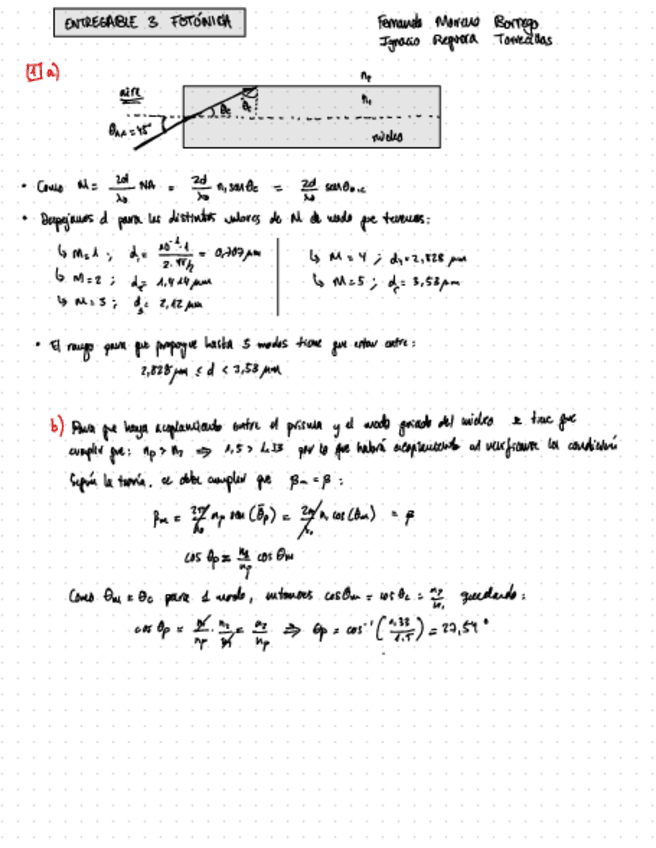 ENTREGABLE 3 FOTÓNICA
Fernando Moreno Borrego
Ignacio Reguera Torrecillas
1 a)
aire
n₂
n₁
θc
θmax = 45°
núcleo
• Como M = 2d/λ₀ NA = 2d/λ₀ n₁ sen θc = 2d/λ₀ sen
• Despejamos d para los distintos valores de M de modo que tenemos:
↳ M=1 ; d₁ = = 0,707 μm
↳ M=2 ; d₂ = 1,414 μm
↳ M=3 ; d₃ = 2,12 μm
↳ M=4 ; d₄ = 2,828 μm
↳ M=5 ; d₅ = 3,53 μm
• El rango para que propague hasta 5 modos tiene que estar entre:
2,828 μm ≤ d < 3,53 μm
b) Para que haya acoplamiento entre el prisma y el modo guiado del núcleo se tiene que
cumplir que: np > n₂ ⇒ 1,5 > 1.33 por lo que habrá acoplamiento al verificarse la condición
Según la teoría, se debe cumplir que βm = β :
βm = 2π/λ₀ np sen (θ̄p) = 2π/λ₀ n₁ cos (θm) = β
cos θp = n₁/np cos θm
Como θm = θc para 1 modo, entonces cos θm = cos θc = n₂/n₁ quedando:
cos θp = n₁/np · n₂/n₁ = n₂/np ⇒ θp = cos⁻¹ (1,33/1.5) = 27,54°